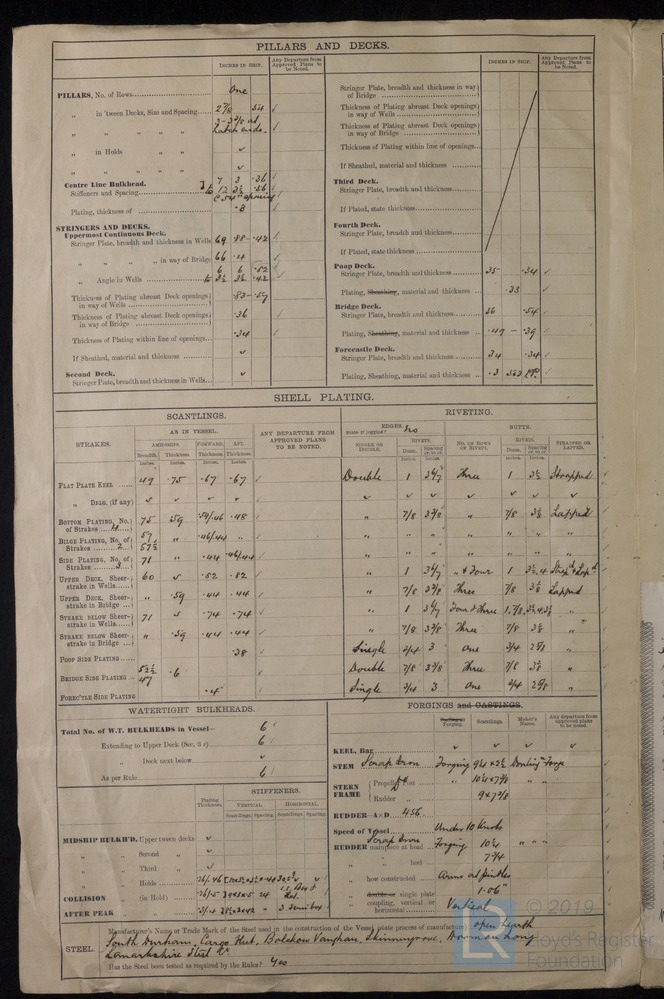 PILLARS AND DECKS.
INCHES IN SHIP.
Any Departure from Approved Plans to be Noted.
PILLARS, No. of Rows
One
„ in 'tween Decks, Size and Spacing
2 7/8 54
„ „ „ „
2-3 3/8 at
hatch ends.
„ in Holds „ „
„ „ „ „
Centre Line Bulkhead.
7 3 .36
Stiffeners and Spacing
12 3½ .56
@ 54" spacing
Plating, thickness of
.3
STRINGERS AND DECKS.
Uppermost Continuous Deck.
Stringer Plate, breadth and thickness in Wells
69 .88-.42
„ „ „ „ in way of Bridge
66 .4
6 6 .82
„ Angle in Wells
3½ 3½ .42
Thickness of Plating abreast Deck openings in way of Wells
.83-.57
Thickness of Plating abreast Deck openings in way of Bridge
.36
Thickness of Plating within line of openings
.34
If Sheathed, material and thickness
Second Deck.
Stringer Plate, breadth and thickness in Wells
INCHES IN SHIP.
Any Departure from Approved Plans to be Noted.
Stringer Plate, breadth and thickness in way of Bridge
Thickness of Plating abreast Deck openings in way of Wells
Thickness of Plating abreast Deck openings in way of Bridge
Thickness of Plating within line of openings
If Sheathed, material and thickness
Third Deck.
Stringer Plate, breadth and thickness
If Plated, state thickness
Fourth Deck.
Stringer Plate, breadth and thickness
If Plated, state thickness
Poop Deck.
Stringer Plate, breadth and thickness
35 .34
Plating, Sheathing, material and thickness
.33
Bridge Deck.
Stringer Plate, breadth and thickness
56 .54
Plating, Sheathing, material and thickness
.49 - .39
Forecastle Deck.
Stringer Plate, breadth and thickness
34 .34
Plating, Sheathing, material and thickness
.3 2½ P.P.
SHELL PLATING.
SCANTLINGS.
RIVETING.
STRAKES.
AS IN VESSEL.
AMIDSHIPS.
FORWARD.
AFT.
Breadth.
Thickness
Thickness.
Thickness.
Inches.
ANY DEPARTURE FROM APPROVED PLANS TO BE NOTED.
EDGES.
State if joggled?
No
SINGLE OR DOUBLE.
RIVETS.
Diam.
Spacing cr. to cr.
BUTTS.
NO. OF ROWS OF RIVETS.
RIVETS.
Diam.
Spacing cr. to cr.
STRAPPED OR LAPPED.
FLAT PLATE KEEL
49 .75 .67 .67
Double 1 Three 1 3½ Strapped
„ DBLG. (if any)
BOTTOM PLATING, No. of Strakes 4
75 .59 .54/.46 .48
„ 7/8 3 3/8 „ 7/8 Lapped
BILGE PLATING, No. of Strakes 2
57 „ .46/.44 „
57½
„ „ „ „ „ „ „
SIDE PLATING, No. of Strakes 3
71 „ .44 .46/.44
„ „ „ „ „ „ „
UPPER DECK, Sheer-strake in Wells
60 .52 .82
„ 1 „ & Four 1 3½, 4
UPPER DECK, Sheer-strake in Bridge
„ .59 .44 .44
„ 7/8 3 3/8 Three 7/8 Lapped
STRAKE BELOW Sheer-strake in Wells
71 .74 .74
„ 1 Four & Three 1, 7/8 „
STRAKE BELOW Sheer-strake in Bridge
„ .59 .44 .44
„ 7/8 3 3/8 Three 7/8 „
POOP SIDE PLATING
.38
Single 3/4 3 One 3/4 2 5/8 „
BRIDGE SIDE PLATING
52½ .6
47
Double 7/8 3 3/8 Three 7/8 „
FOREC'TLE SIDE PLATING
.4
Single 3/4 3 One 3/4 2 5/8 „
WATERTIGHT BULKHEADS.
Total No. of W.T. BULKHEADS in Vessel—
6
Extending to Upper Deck (Sec. 3 c)
6
„ Deck next below
As per Rule
6
Plating Thickness.
STIFFENERS.
VERTICAL.
HORIZONTAL.
Scantlings.
Spacing
Scantlings.
Spacing
MIDSHIP BULKH'D, Upper tween decks
„ „ Second „
„ „ Third „
„ „ Holds
COLLISION „ (in Hold)
24
AFTER PEAK „ „
FORGINGS and CASTINGS.
Casting or Forging.
Scantlings.
Maker's Name.
Any departure from approved plans to be noted.
KEEL, Bar
STEM Scrap Iron
Forging 9¼ x 2½ Forge
STERN FRAME
Propeller Post
„ „ „
Rudder „
RUDDER—A×D 456
Speed of Vessel
Under 10 Knots
Scrap Iron
RUDDER mainpiece at head
Forging 10¼
„ „ heel
7¾
„ how constructed
Arms at pintles
„ double or single plate
1.06"
„ coupling, vertical or horizontal
Vertical
STEEL.
Manufacturer's Name or Trade Mark of the Steel used in the construction of the Vessel (state process of manufacture)
open hearth
South Durham, Cargo Fleet, Bolckow Vaughan, Skinningrove, Dorman Long
Lanarkshire Steel Co
Has the Steel been tested as required by the Rules?
Yes
LR
© 2019
Lloyd's Register
Foundation